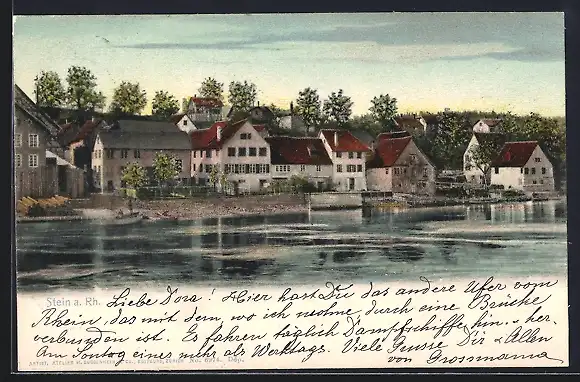 Stein a. Rh. Liebe Dora! Hier hast Du das andere Ufer vom
Rhein, das mit dem, wo ich wohne durch eine Brücke
verbunden ist. Es fahren täglich Dampfschiffe hin & her.
Am Sontag eines mehr als Werktags. Viele Küsse Dir & Allen
von Grossmama